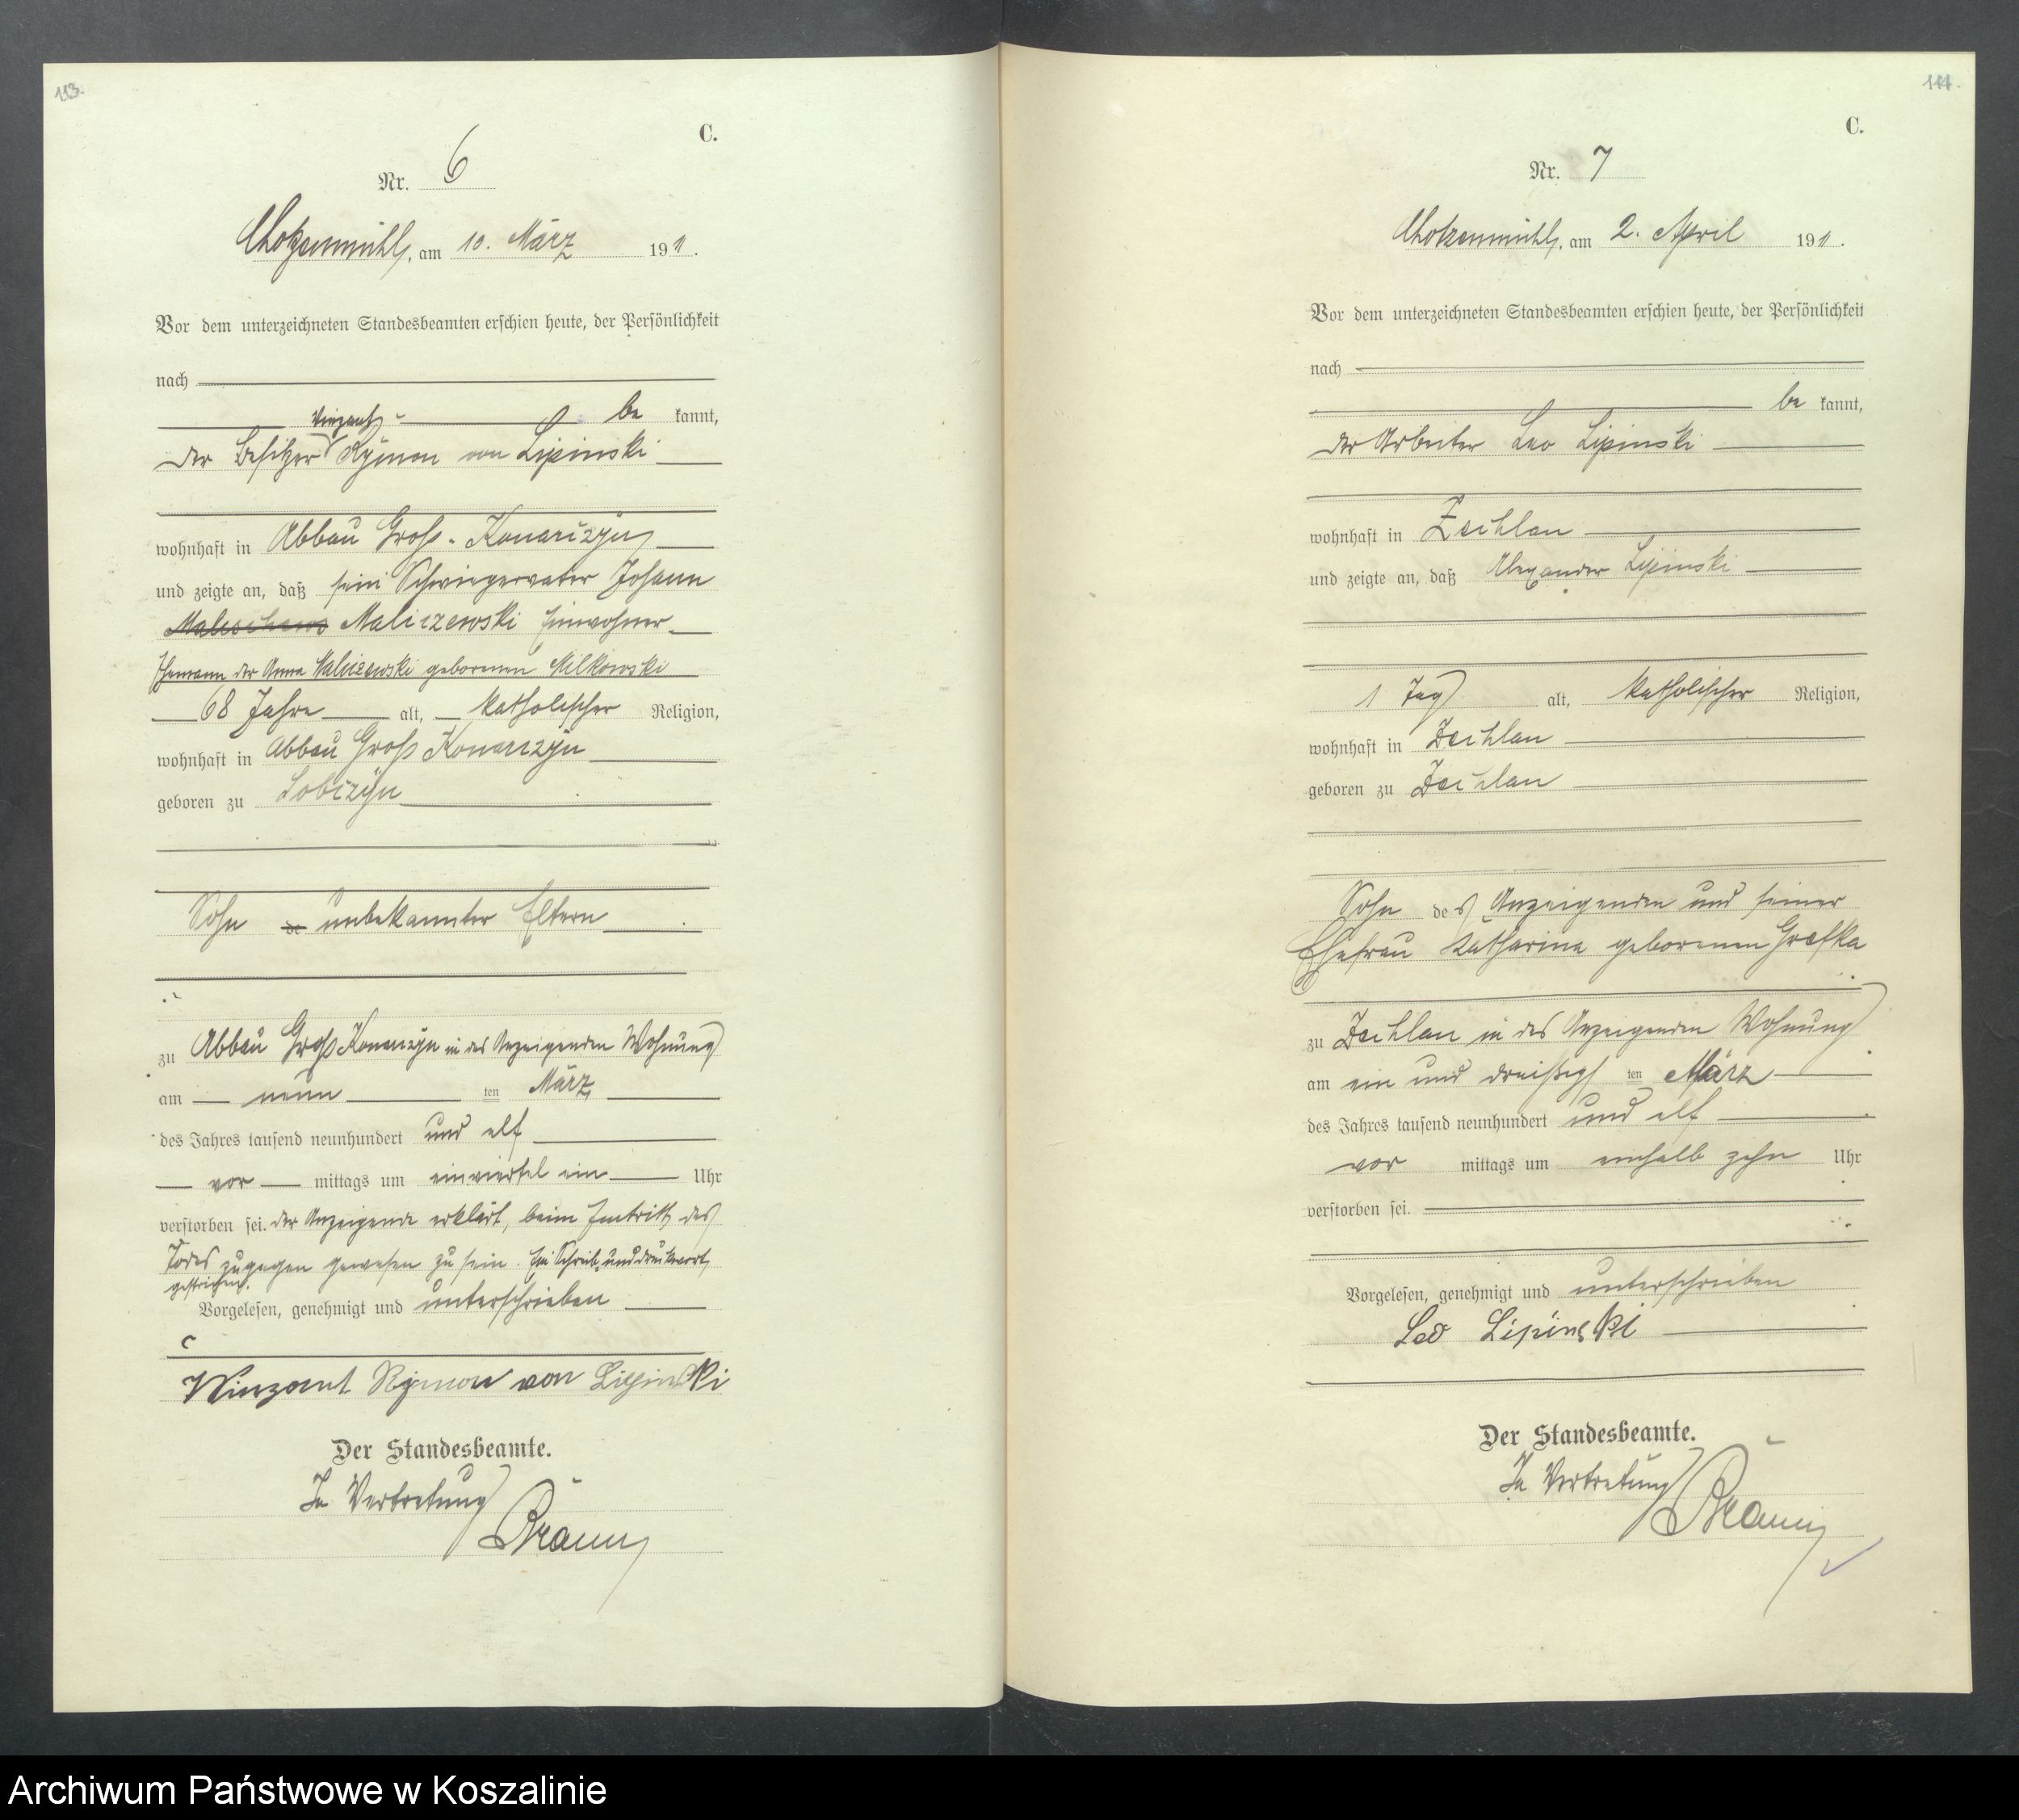 113.
C.
Nr. 6
Chotzenmühl, am 10. März 1911.
Vor dem unterzeichneten Standesbeamten erschien heute, der Persönlichkeit
nach
Vinzent be kannt,
der Besitzer Rymon von Lipinski
wohnhaft in Abbau Groß-Konarczyn
und zeigte an, daß sein Schwiegervater Johann
Maliczewski Einwohner
Ehemann der Anna Maliczewski geborenen Milkowski
68 Jahre alt, katholischer Religion,
wohnhaft in Abbau Groß Konarczyn
geboren zu Sobczyn
Sohn de unbekannter Eltern
zu Abbau Groß Konarczyn in des Anzeigenden Wohnung
am neun ten März
des Jahres tausend neunhundert und elf
vor mittags um einviertel ein Uhr
verstorben sei. der Anzeigende erklärt, beim Eintritt des
Todes zugegen gewesen zu sein. Ein Schreib- und druckwort
gestrichen.
Vorgelesen, genehmigt und unterschrieben
Winzent Rymon von Lipinski
Der Standesbeamte.
In Vertretung
Braun
114.
C.
Nr. 7
Chotzenmühl, am 2. April 1911.
Vor dem unterzeichneten Standesbeamten erschien heute, der Persönlichkeit
nach
be kannt,
der Arbeiter Leo Lipinski
wohnhaft in Zechlau
und zeigte an, daß Alexander Lipinski
1 Tag alt, katholischer Religion,
wohnhaft in Zechlau
geboren zu Zechlau
Sohn des Anzeigenden und seiner
Ehefrau Katharina geborenen Grefka
zu Zechlau in des Anzeigenden Wohnung
am ein und dreißig ten März
des Jahres tausend neunhundert und elf
vor mittags um einhalb zehn Uhr
verstorben sei.
Vorgelesen, genehmigt und unterschrieben
Leo Lipinski
Der Standesbeamte.
In Vertretung
Braun
Archiwum Państwowe w Koszalinie